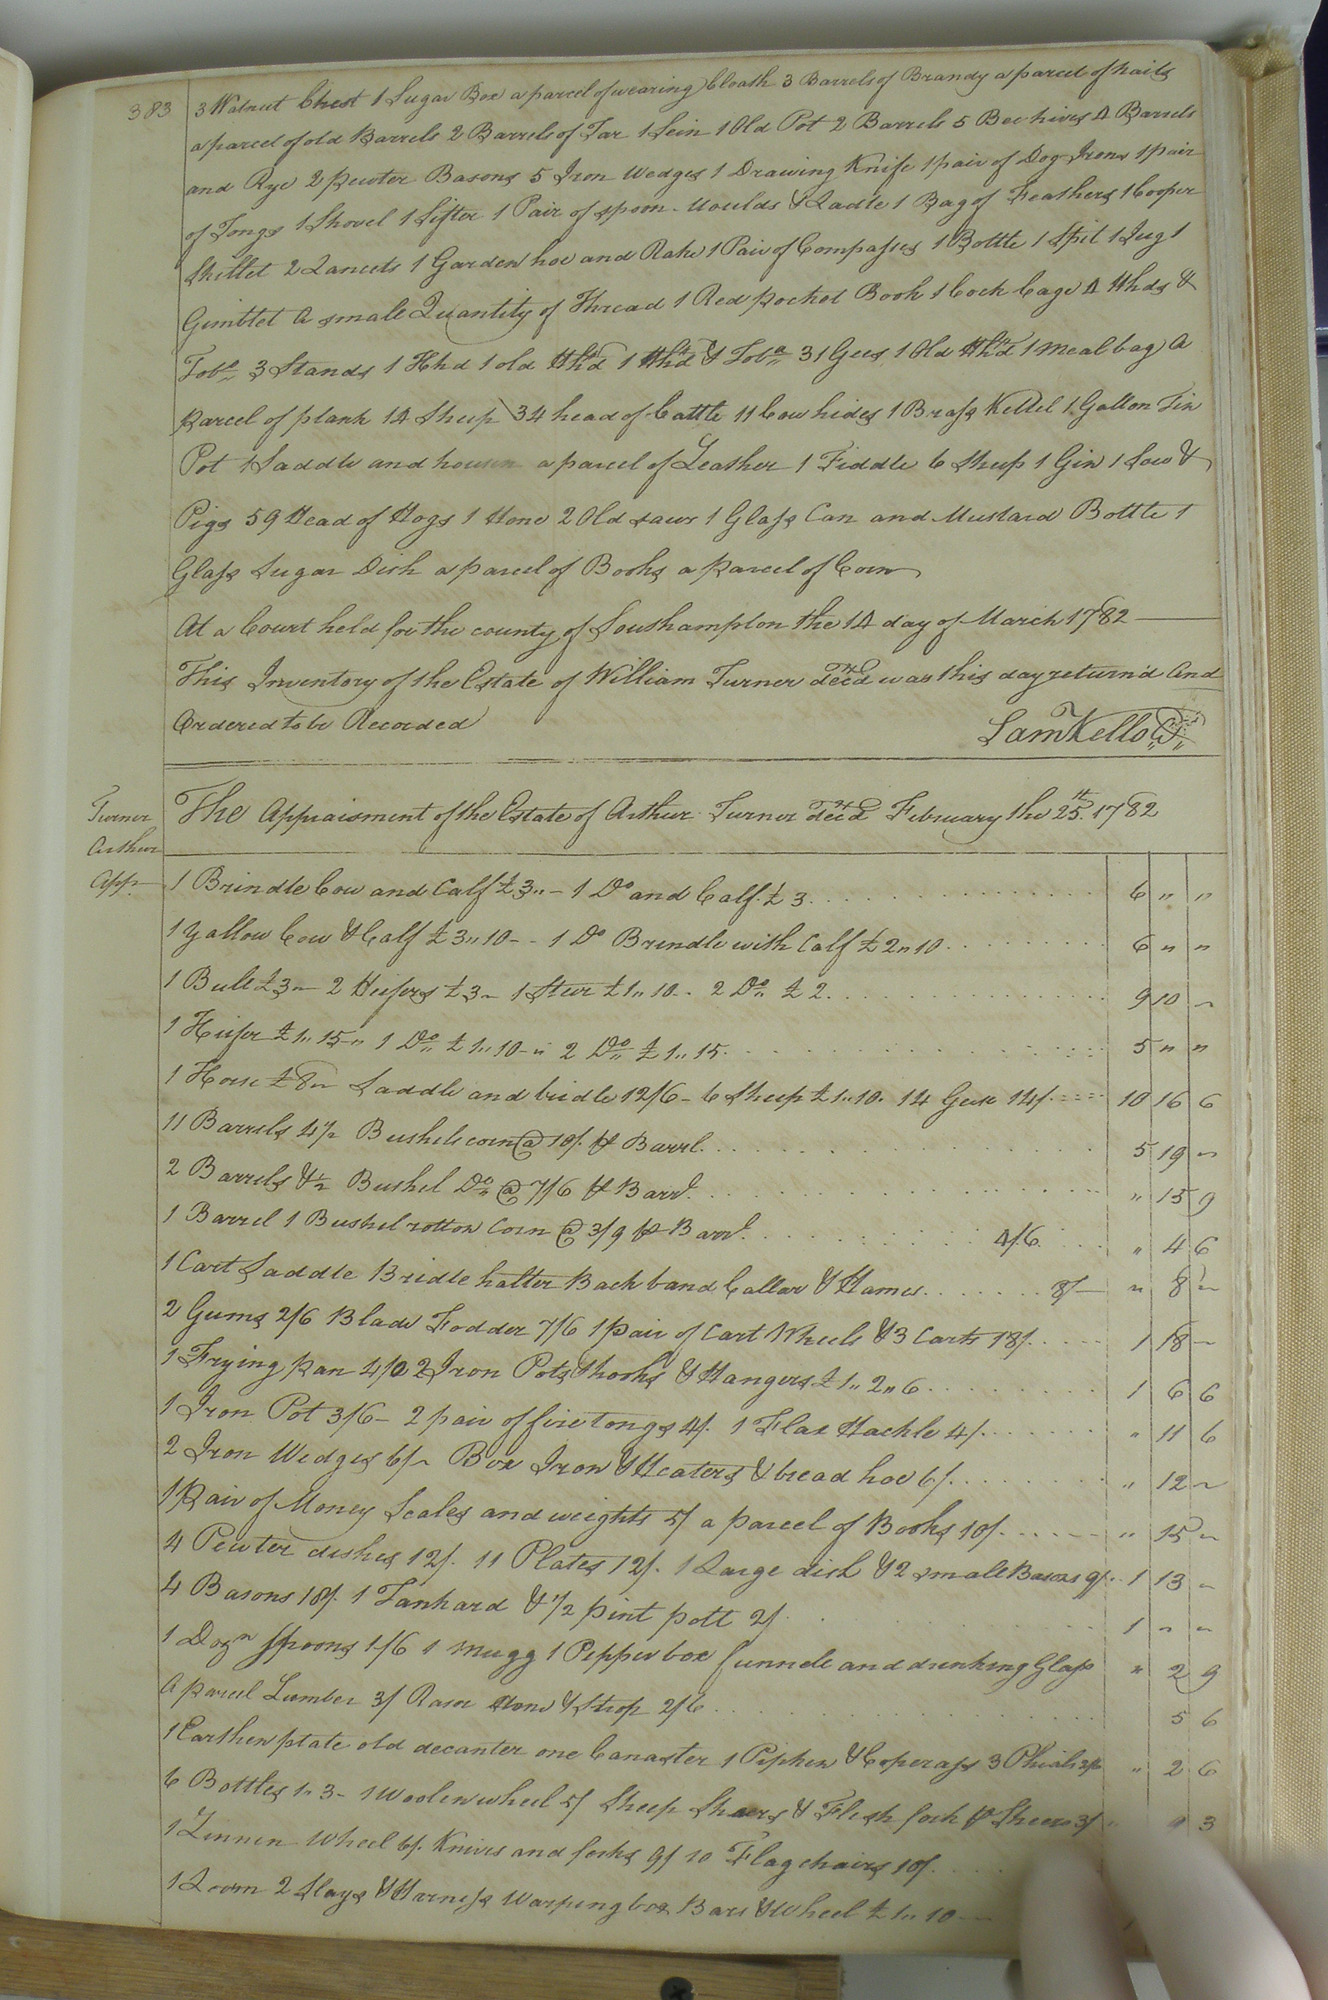 383
3 Walnut Chest 1 Sugar Box a parcel of wearing Cloath 3 Barrels of Brandy a parcel of nails
a parcel of old Barrels 2 Barrels of Tar 1 Sein 1 Old Pot 2 Barrels 5 Bee hives 4 Barrels
and Rye 2 pewter Basons 5 Iron Wedges 1 Drawing Knife 1 pair of Dog Irons 1 pair
of Tongs 1 Shovel 1 Sifter 1 Pair of spoon Moulds & Ladle 1 Bag of Feathers 1 Cooper
Skillet 2 Lancets 1 Garden hoe and Rake 1 Pair of Compasses 1 Bottle 1 Spit 1 Jug 1
Gimblet A small Quantity of Thread 1 Red pocket Book 1 Cock Cage 4 Hhds &
Tobo 3 Stands 1 Hhd 1 old Hhd 1 Hhd & Toba 31 Gees 1 Old Hhd 1 meal bag A
parcel of plank 14 Sheep 34 head of Cattle 11 Cow hides 1 Brass Kettel 1 Gallon Tin
Pot 1 Saddle and housen a parcel of Leather 1 Fiddle 6 Sheep 1 Gin 1 Sow &
Pigs 59 Head of Hogs 1 Hone 2 Old saws 1 Glass Can and Mustard Bottle 1
Glass Sugar Dish a parcel of Books a parcel of Corn
At a Court held for the county of Southampton the 14 day of March 1782
This Inventory of the Estate of William Turner decd was this day return'd And
Ordered to be Recorded
Sam Kello
Turner
Arthur
App
The Appraisment of the Estate of Arthur Turner decd February the 25th 1782
1 Brindle Cow and Calf £3 " - 1 Do and Calf £3 6 " "
1 Yallow Cow & Calf £3 " 10 - - 1 Do Brindle with Calf £2 " 10 6 " "
1 Bull £3 - 2 Heifers £3 - 1 Steer £1 " 10 - 2 Do £2 9 10 -
1 Heifer £1 " 15 - " 1 Do £1 " 10 - " 2 Do £1 " 15 5 " "
1 Horse £8 - Saddle and bridle 12/6 - 6 Sheep £1 " 10. 14 Geese 14/ 10 16 6
11 Barrels 4½ Bushels corn @ 10/ ⅌ Barrl 5 19 -
2 Barrels & ½ Bushel Do @ 7/6 ⅌ Barrl " 15 9
1 Barrel 1 Bushel rotton Corn @ 3/9 ⅌ Barrl 4/6 " 4 6
1 Cart Saddle Bridle halter Back band Collar & Hames 8/- " 8 -
2 Gums 2/6 Blade Fodder 7/6 1 pair of Cart Wheels & 3 Carts 18/ 1 18 -
1 Frying pan 4/0 2 Iron Pots hooks & Hangers £1 " 2 " 6 1 6 6
1 Iron Pot 3/6 - 2 pair of fire tongs 4/. 1 Flax Hackle 4/ " 11 6
2 Iron Wedges 6/- Box Iron & Heaters & bread hoe 6/ " 12 -
1 Pair of Money Scales and weights 5/ a parcel of Books 10/ " 15 -
4 Pewter dishes 12/. 11 Plates 12/. 1 Large dish & 2 small Basons 9/ 1 13 -
4 Basons 18/ 1 Tankard & 1/2 pint pott 2/ 1 " "
1 Dozn Spoons 1/6 1 mugg 1 Pepper box funnele and drinking Glass " 2 9
A parcel Lumber 3/ Rasor Hone & Strop 2/6 5 6
1 Earthen plate old decanter one Canaster 1 Pipkin & Coperass 3 Phials " 2 6
6 Bottles 1 " 3 - 1 Woolen wheel 5/ Sheep Shears & Flesh fork & Sheers 3/ 9 3
1 Linnen Wheel 6/. Knives and forks 9/ 10 Flag chairs 10/
1 Loom 2 Slays & Harness Warping box Bars & Wheel £1 " 10 -